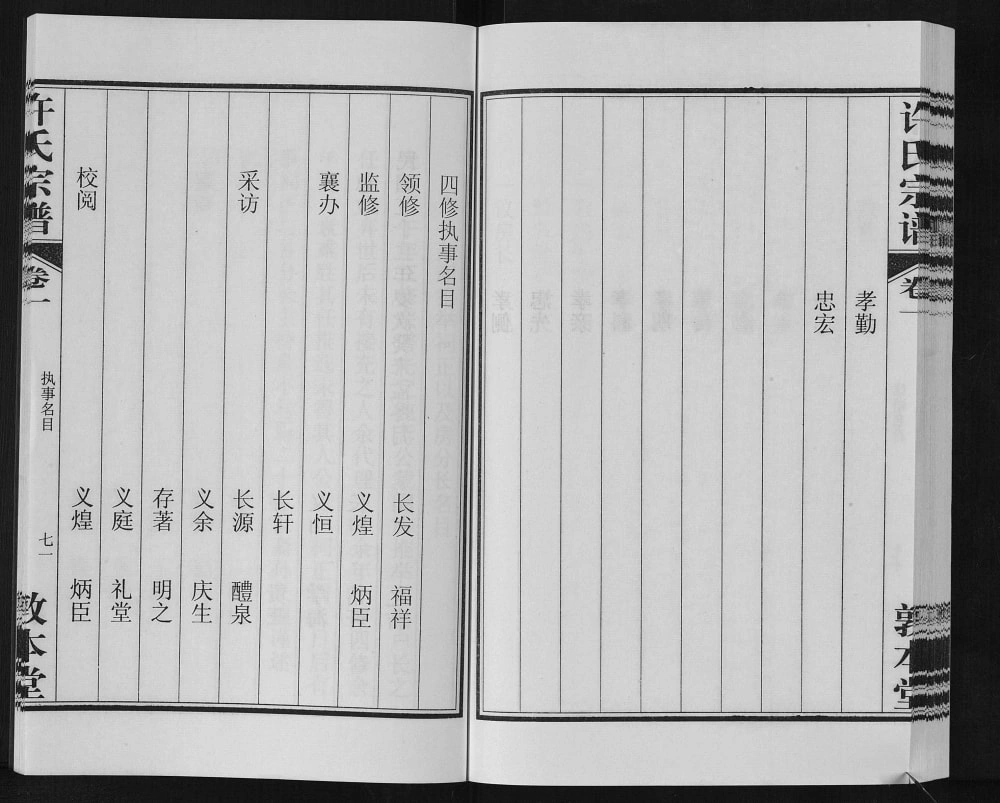 许氏宗谱
卷一
敦本堂
孝勤
忠宏
四修执事名目
领修 长发 福祥
监修 义煌 炳臣
襄办 义恒
长轩
采访 长源 醴泉
义余 庆生
存著 明之
义庭 礼堂
校阅 义煌 炳臣
许氏宗谱
卷一
执事名目
七一
敦本堂